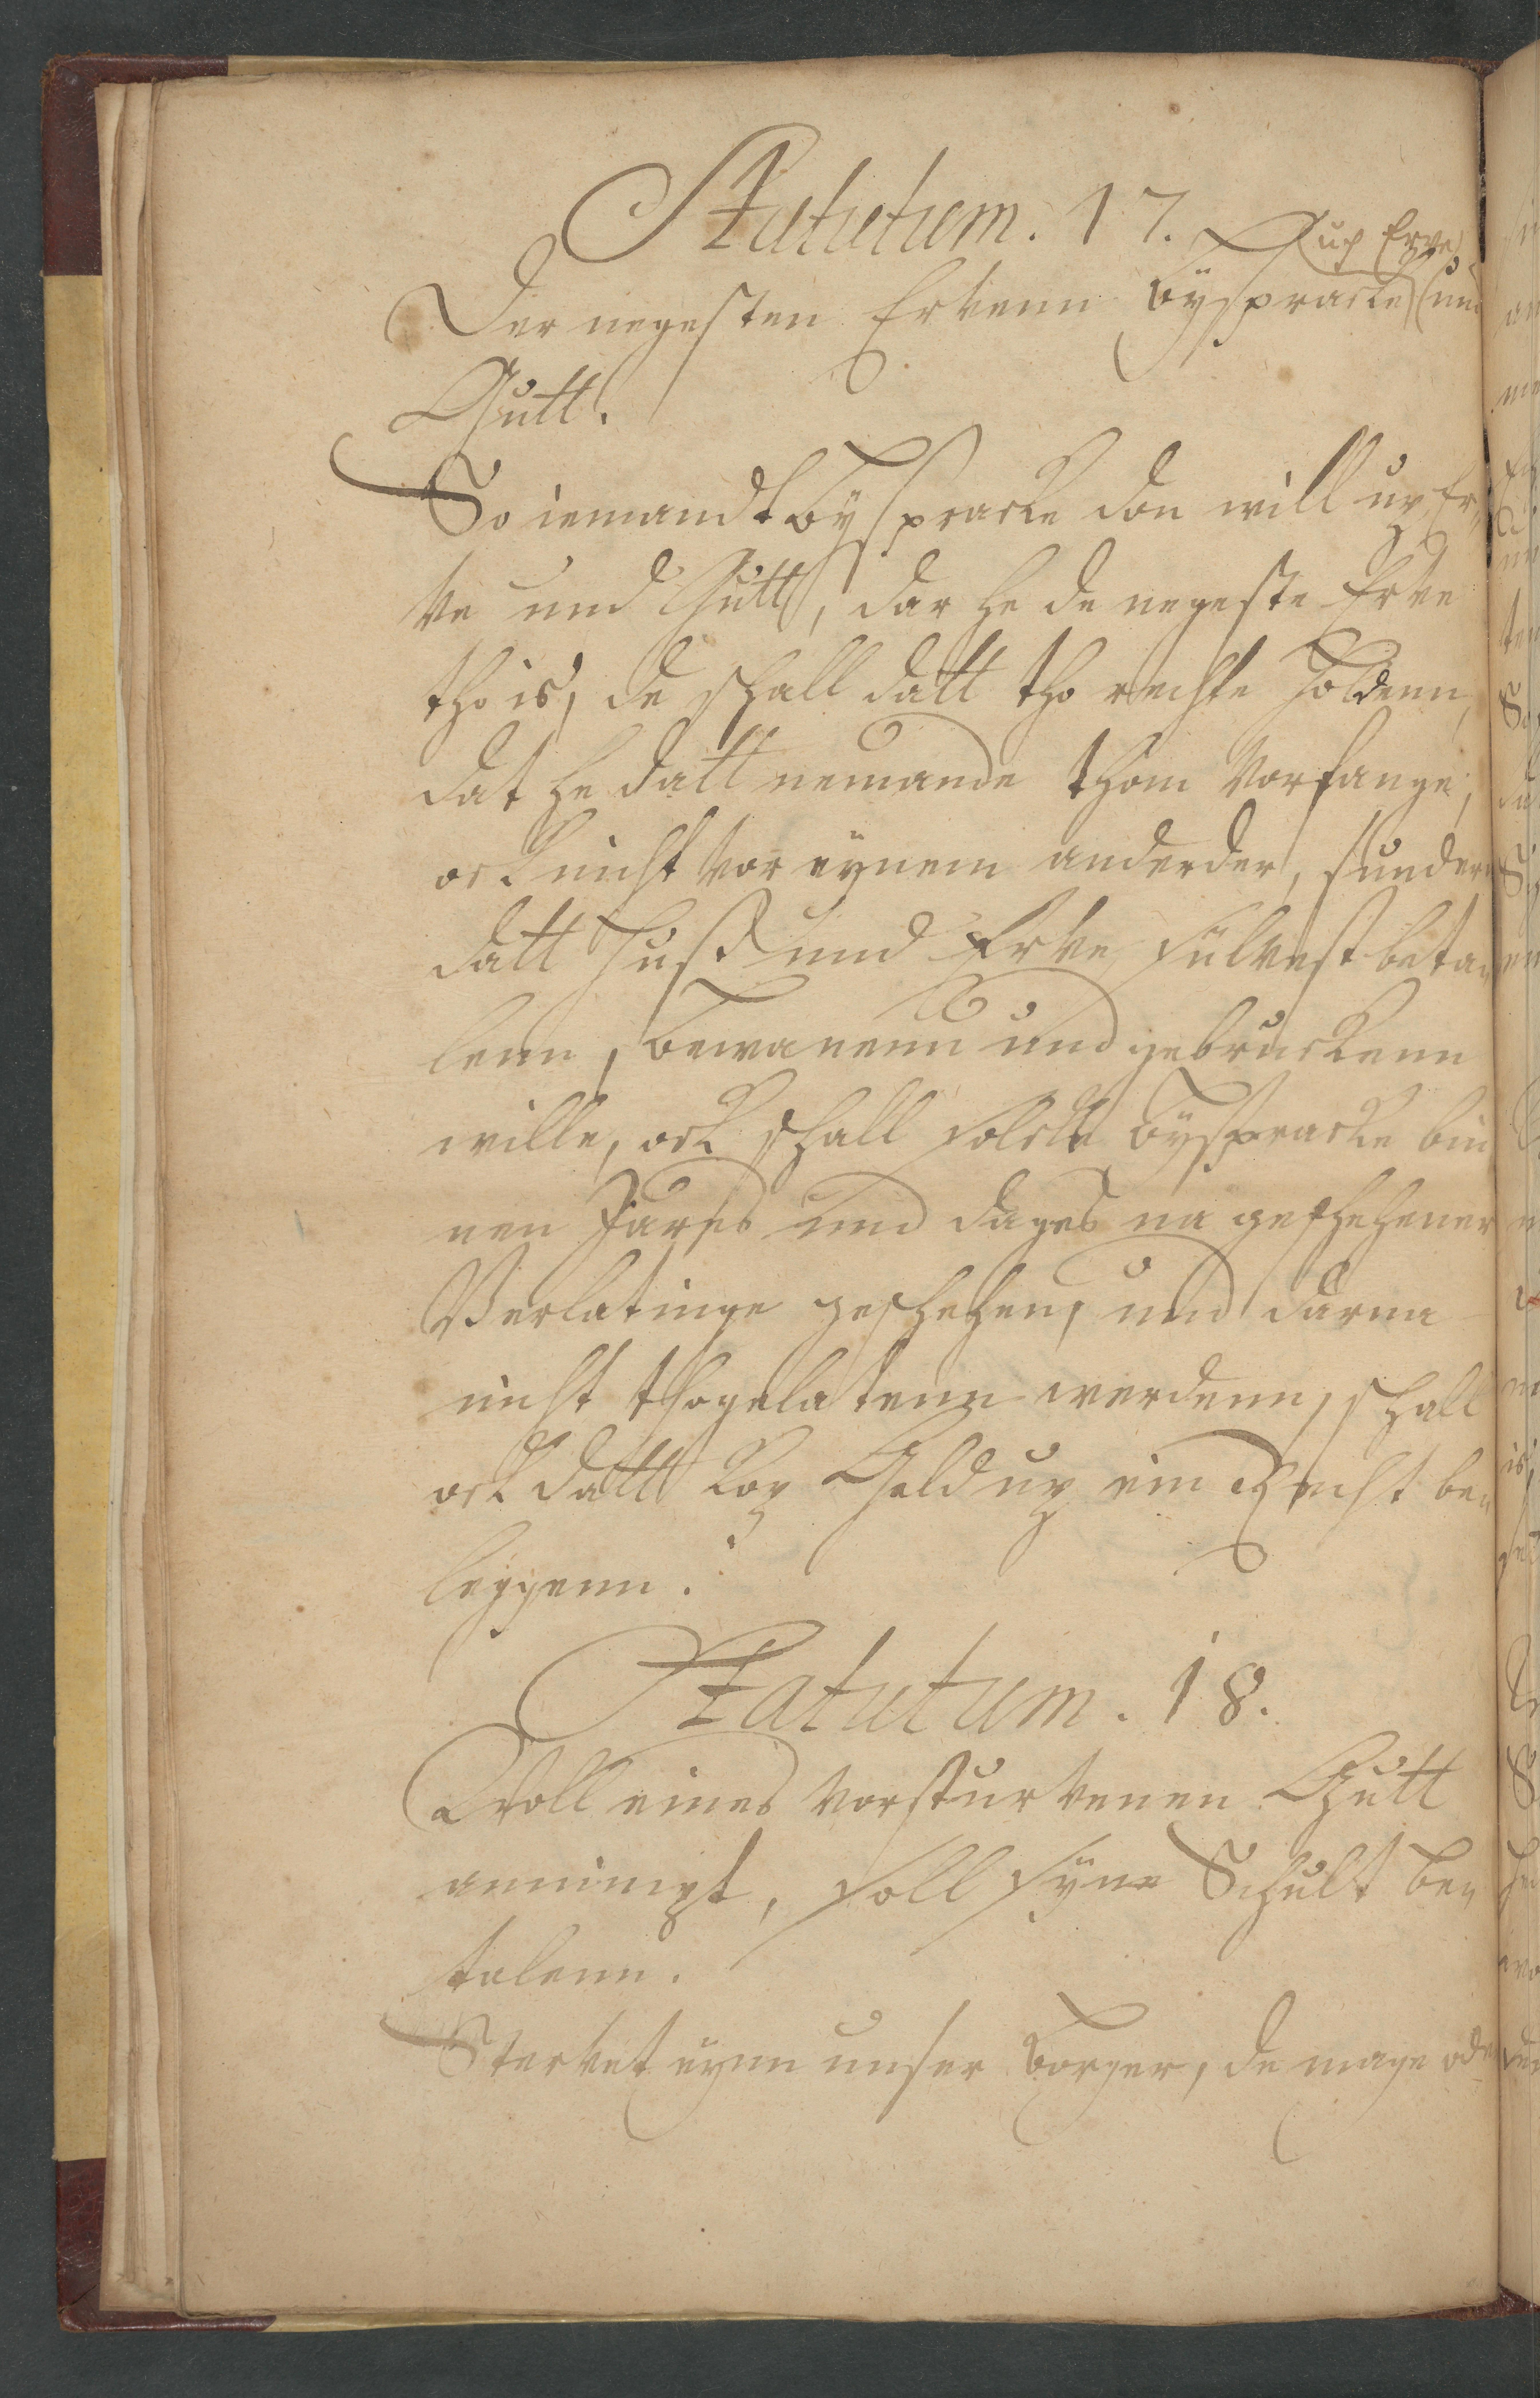 Statutum. 17.
up Erve
Der negesten Ervenn Bÿspracke und
Gutt.
So iemandt Bÿspracke don will up Er¬
ve und Gutt, dar he de negeste Erve
tho is, de schall datt tho rechte holdenn,
dat he datt nemande thom Vorfange,
ock nicht vor eynem anderder, sundern
datt Huß und Erve sulvest beta¬
lenn, bewanenn und gebruckenn
wille, ock schall solcke Bÿspracke bin
nen Jares und dages na geschehener
Verlatinge geschehen, und darna
nicht thogelatenn werdenn, schall
ock datt Kop Geld up ein Recht be¬
leggenn.
Statutum. 18.
Woll eines vorsturvenen Gutt
annimpt, soll sÿne Schult be¬
talenn.
Stervet eynn unser Borger, de mage oder